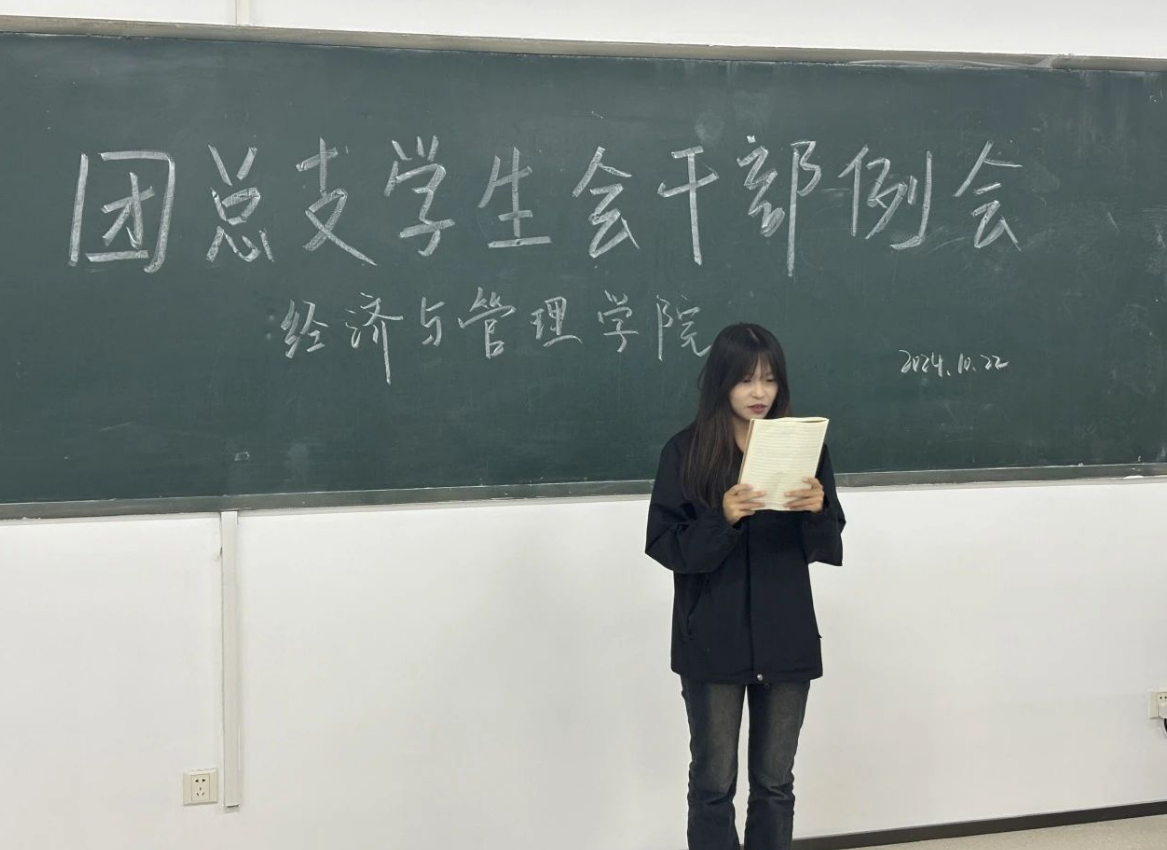 团总支学生会干部例会
经济与管理学院
2024.10.22